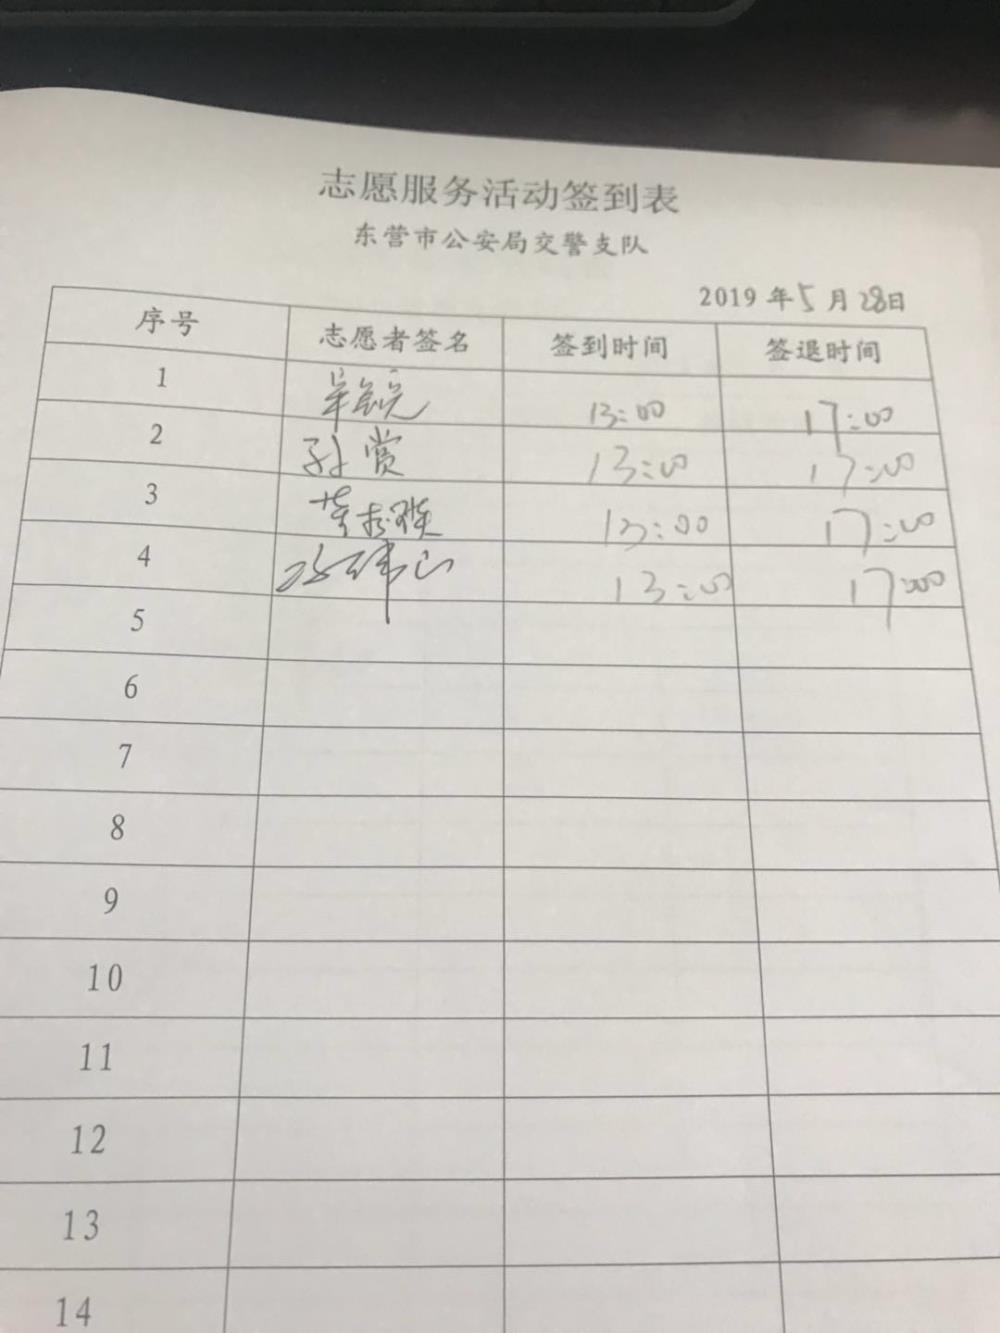 志愿服务活动签到表
东营市公安局交警支队
2019 年 5 月 28 日
序号 志愿者签名 签到时间 签退时间
1 13:00 17:00
2 孙赏 13:00 17:00
3 13:00 17:00
4 13:00 17:00
5
6
7
8
9
10
11
12
13
14